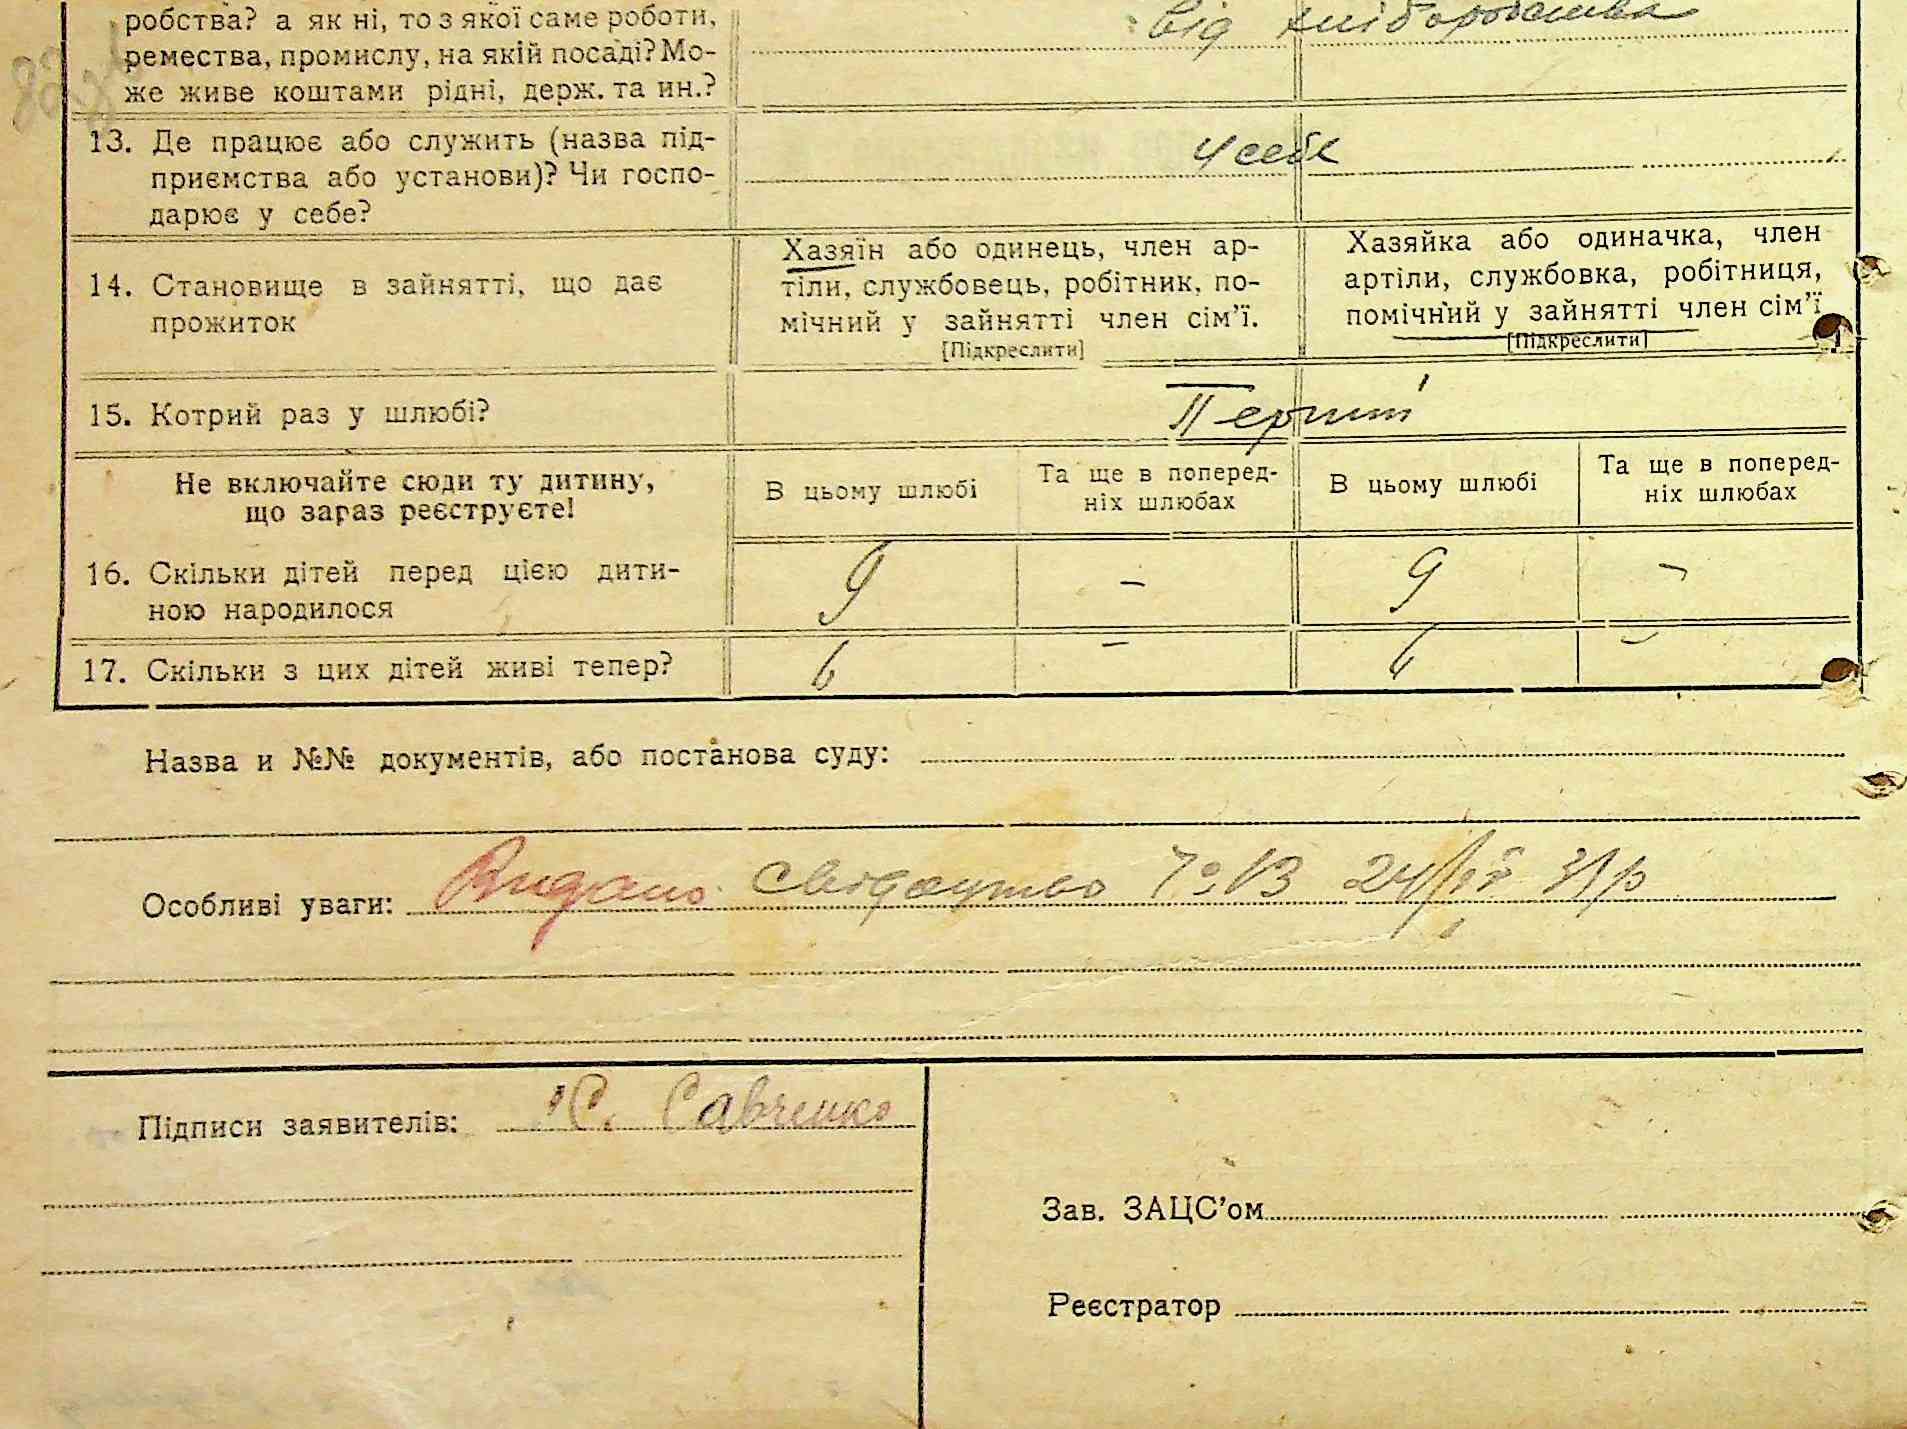 робства? а як ні, то з якої саме роботи,
ремества, промислу, на якій посаді? Мо-
же живе коштами рідні, держ. та ин.?
від хліборобства
13. Де працює або служить (назва під-
приємства або установи)? Чи госпо-
дарює у себе?
у себе
14. Становище в зайнятті, що дає
прожиток
Хазяїн або одинець, член ар-
тіли, службовець, робітник, по-
мічний у зайнятті член сім'ї.
[Підкреслити]
Хазяйка або одиначка, член
артіли, службовка, робітниця,
помічний у зайнятті член сім'ї
[Підкреслити]
15. Котрий раз у шлюбі?
Перший
Не включайте сюди ту дитину,
що зараз реєструєте!
В цьому шлюбі
Та ще в поперед-
ніх шлюбах
В цьому шлюбі
Та ще в поперед-
ніх шлюбах
16. Скільки дітей перед цією дити-
ною народилося
9 – 9 –
17. Скільки з цих дітей живі тепер?
6 – 6 –
Назва и №№ документів, або постанова суду:
Особливі уваги: Видано свідоцтво 24 31 р
Підписи заявителів: С. Савченко
Зав. ЗАЦС'ом
Реєстратор